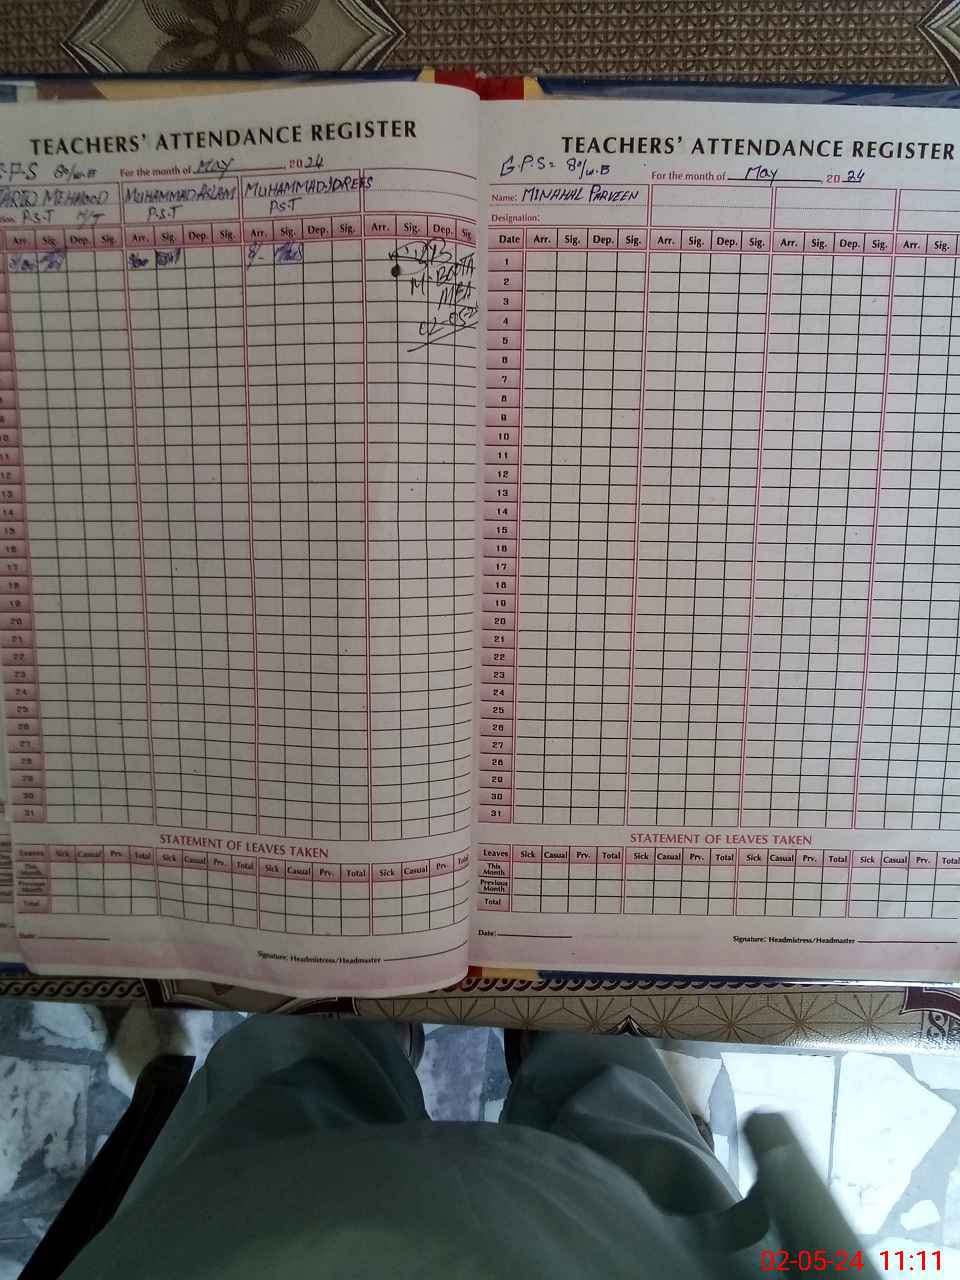 TEACHERS' ATTENDANCE REGISTER
G-P-S 80/W.B For the month of May, 2024
TARIQ MEHMOOD MUHAMMAD ASLAM MUHAMMAD IDREES
P.S.T H/T P.S.T P.S.T
Arr. Sig. Dep. Sig. Arr. Sig. Dep. Sig. Arr. Sig. Dep. Sig. Arr. Sig. Dep. Sig.
M. BOOTA
MEA
02-05-24
10
11
12
13
14
15
16
17
18
19
20
21
22
23
24
25
26
27
28
29
30
31
STATEMENT OF LEAVES TAKEN
Leaves Sick Casual Prv. Total Sick Casual Prv. Total Sick Casual Prv. Total Sick Casual Prv. Total
This Month
Previous Month
Total
Date:
Signature: Headmistress/Headmaster
TEACHERS' ATTENDANCE REGISTER
G.P.S= 80/W.B For the month of May, 2024
Name: MINAHAL PARVEEN
Designation:
Date Arr. Sig. Dep. Sig. Arr. Sig. Dep. Sig. Arr. Sig. Dep. Sig. Arr. Sig.
1
2
3
4
5
6
7
8
9
10
11
12
13
14
15
16
17
18
19
20
21
22
23
24
25
26
27
28
29
30
31
STATEMENT OF LEAVES TAKEN
Leaves Sick Casual Prv. Total Sick Casual Prv. Total Sick Casual Prv. Total Sick Casual Prv. Total
This Month
Previous Month
Total
Date:
Signature: Headmistress/Headmaster
02-05-24 11:11